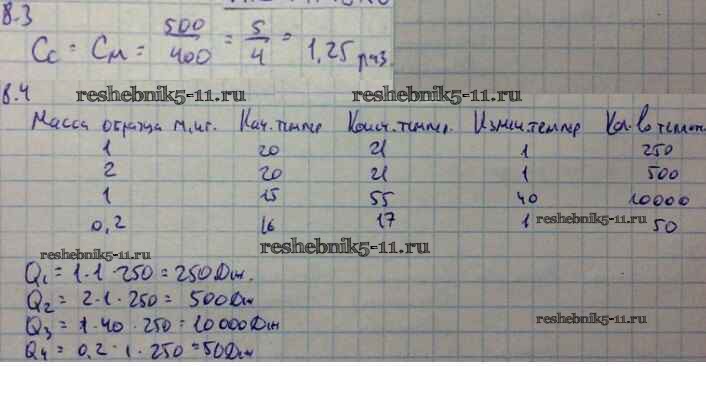 8.3
Cc : Cм = 500/400 = 5/4 = 1,25 раз.
8.4
reshebnik5-11.ru reshebnik5-11.ru
Масса образца м,кг. Нач.темпер Конеч.темпер. Измен.темпер Кол-во теплот.
1 20 21 1 250
2 20 21 1 500
1 15 55 40 10000
0,2 16 17 1 50
reshebnik5-11.ru reshebnik5-11.ru reshebnik5-11.ru
Q1 = 1·1·250 = 250Дж.
Q2 = 2·1·250 = 500Дж
Q3 = 1·40·250 = 10000Дж
reshebnik5-11.ru
Q4 = 0,2·1·250 = 50Дж